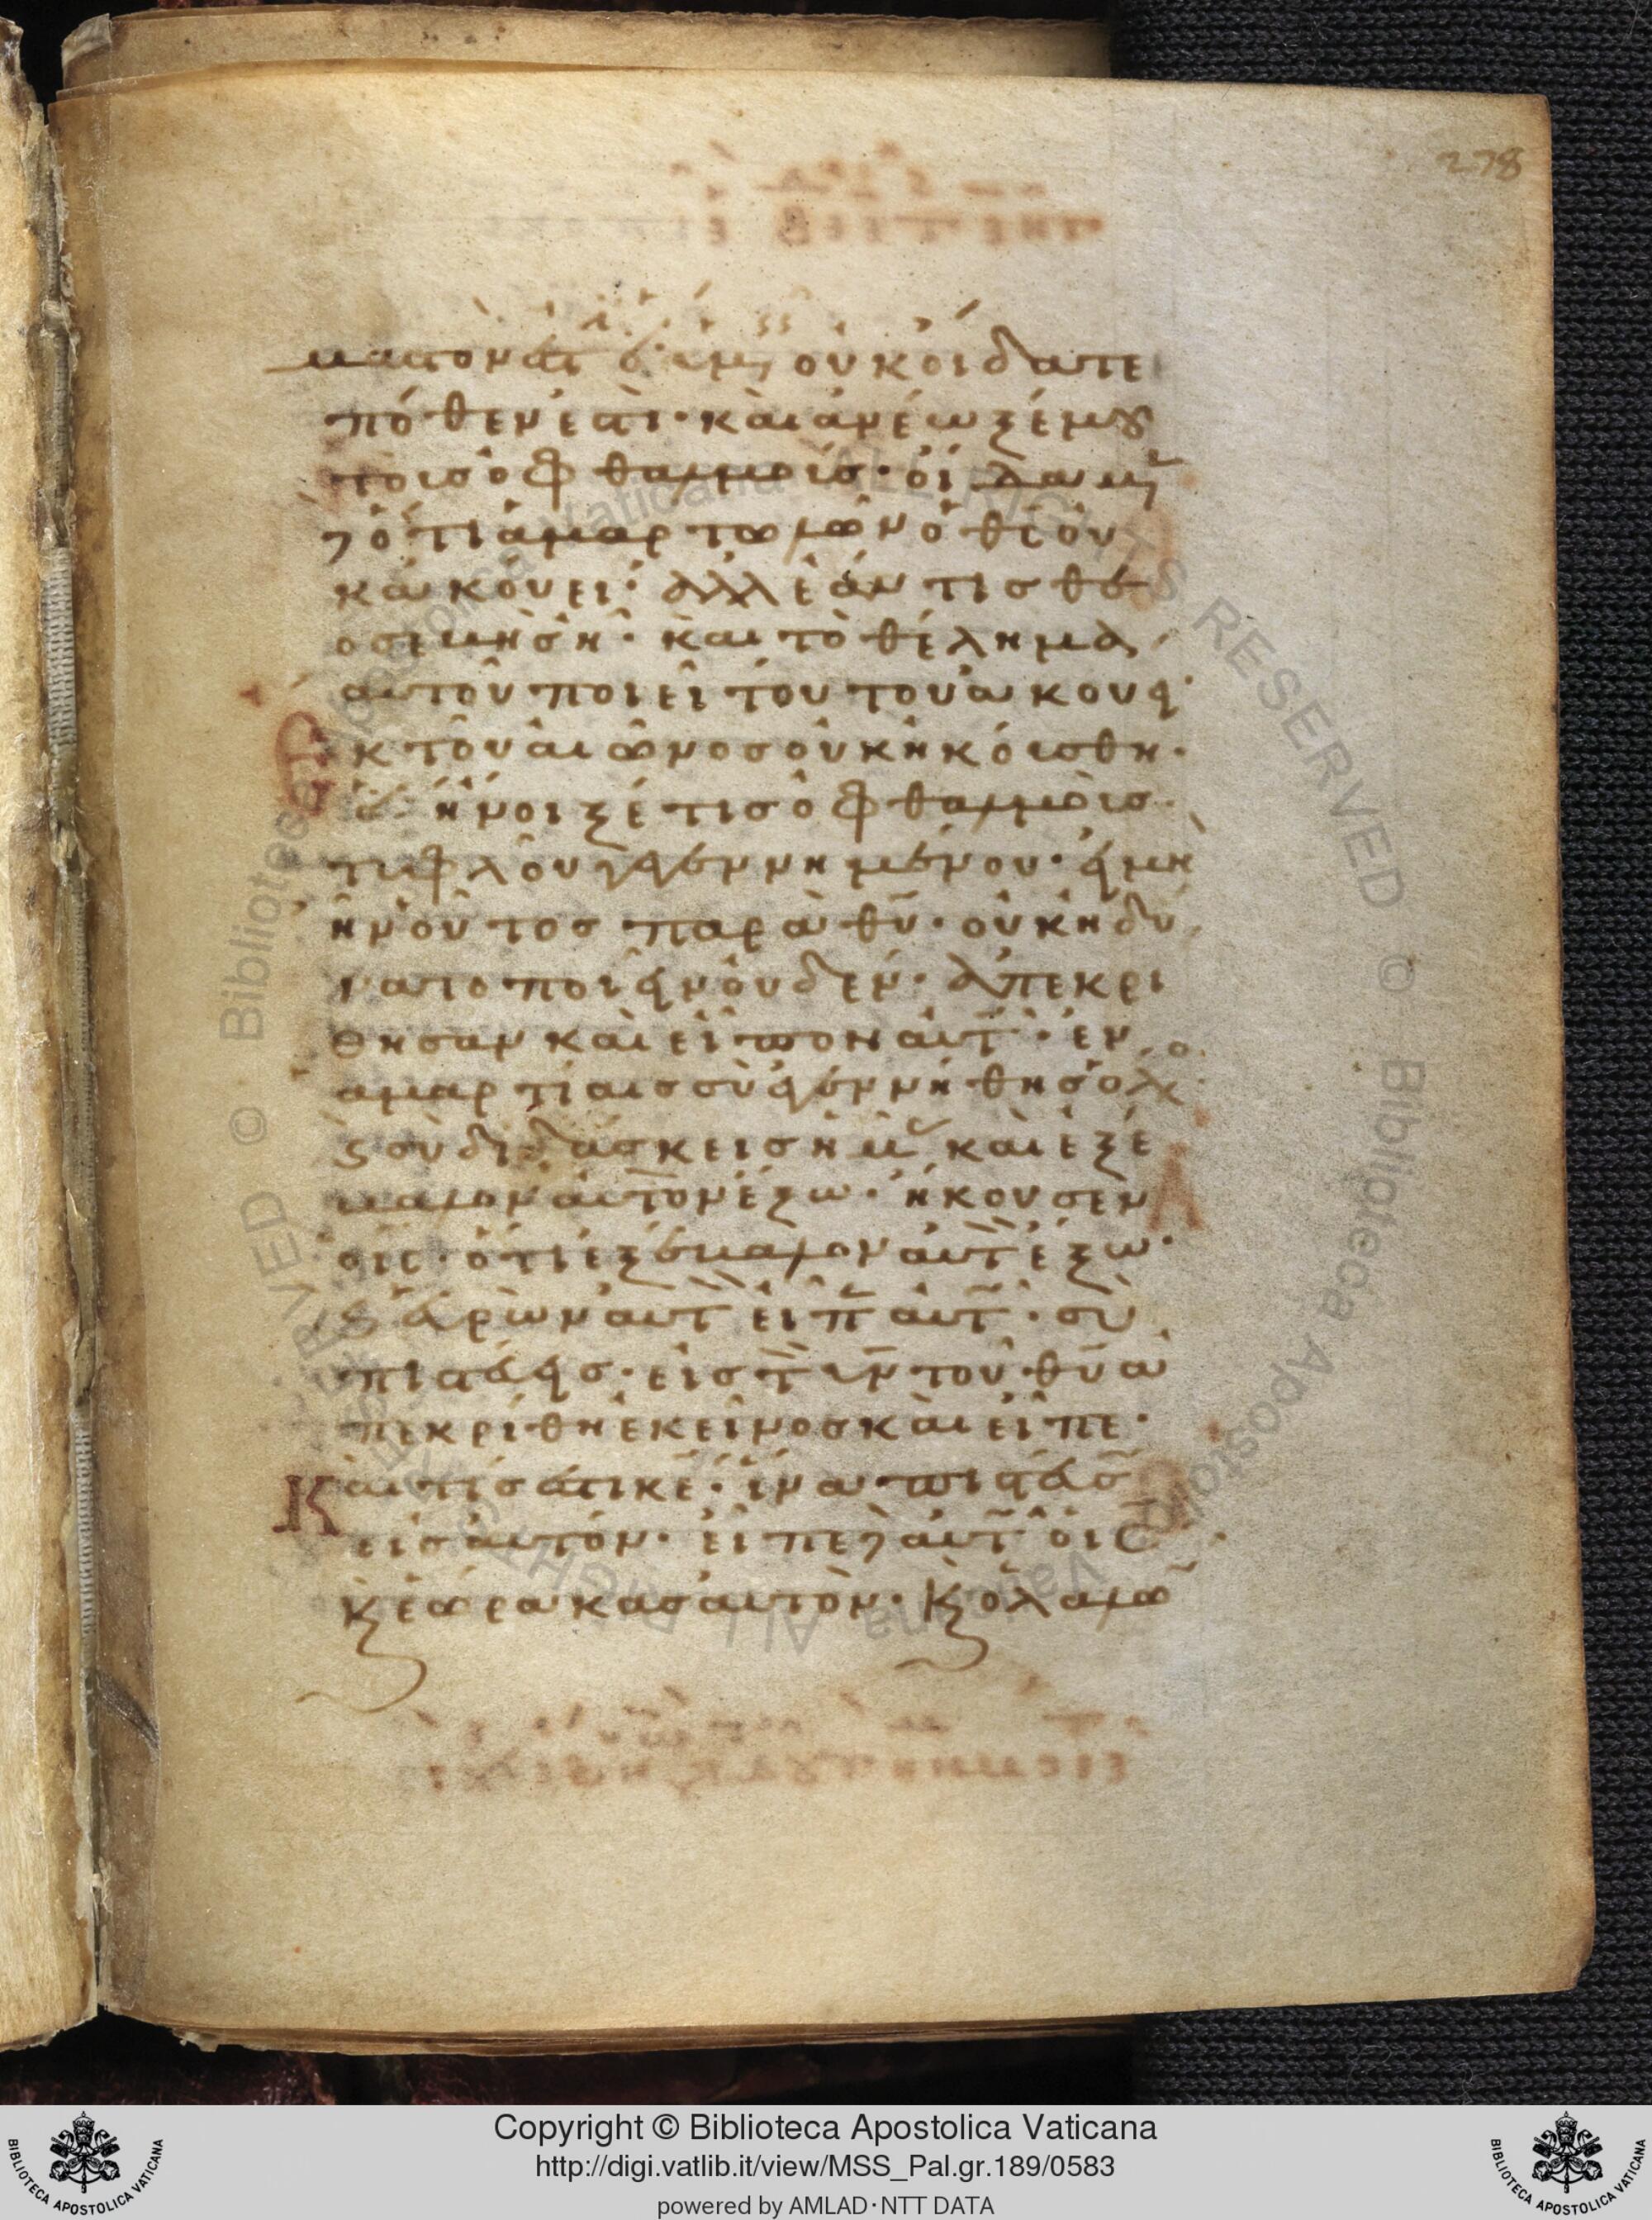 278
μαστον ἐστ ὅτι ὑμεῖς οὐκ οἴδατε
πόθεν ἐστὶ· καὶ ἀνέωξέ μου
τοὺς ὀφθαλμούς· οἴδαμεν
δὲ ὅτι ἁμαρτωλῶν ὁ θς οὐ
κ ἀκούει· ἀλλ ἐάν τις θε
οσεβὴς ἦ· καὶ τὸ θέλημα
αὐτοῦ ποιεῖ τούτου ἀκούει·
Ἐκ τοῦ αἰῶνος οὐκ ἠκούσθη·
ὅτι ἤνοιξέ τις ὀφθαλμοὺς
τυφλοῦ γεγεννημένου· εἰ μὴ
ἦν οὗτος παρὰ θυ· οὐκ ἠδύ
νατο ποιεῖν οὐδέν· ἀπεκρί
θησαν καὶ εἶπον αὐτῶ· ἐν
ἁμαρτίαις σὺ ἐγεννήθης ὅλος
καὶ σὺ διδάσκεις ἡμᾶς καὶ ἐξέ
βαλον αὐτὸν ἔξω· ἤκουσεν
ὁ ις· ὅτι ἐξέβαλον αὐτὸν ἔξω·
καὶ εὑρὼν αὐτὸν εἶπεν αὐτῶ· σὺ
πιστεύεις· εἰς τὸν υν τοῦ θυ ἀ
πεκρίθη ἐκεῖνος καὶ εἶπε·
Καὶ τίς ἐστι κε· ἵνα πιστεύσω
εἰς αὐτόν· εἶπε δὲ αὐτῶ ὁ ις
καὶ ἑώρακας αὐτὸν· καὶ ὁ λαλῶ
Copyright © Biblioteca Apostolica Vaticana
http://digi.vatlib.it/view/MSS_Pal.gr.189/0583
powered by AMLAD·NTT DATA
BIBLIOTECA APOSTOLICA VATICANA
BIBLIOTECA APOSTOLICA VATICANA